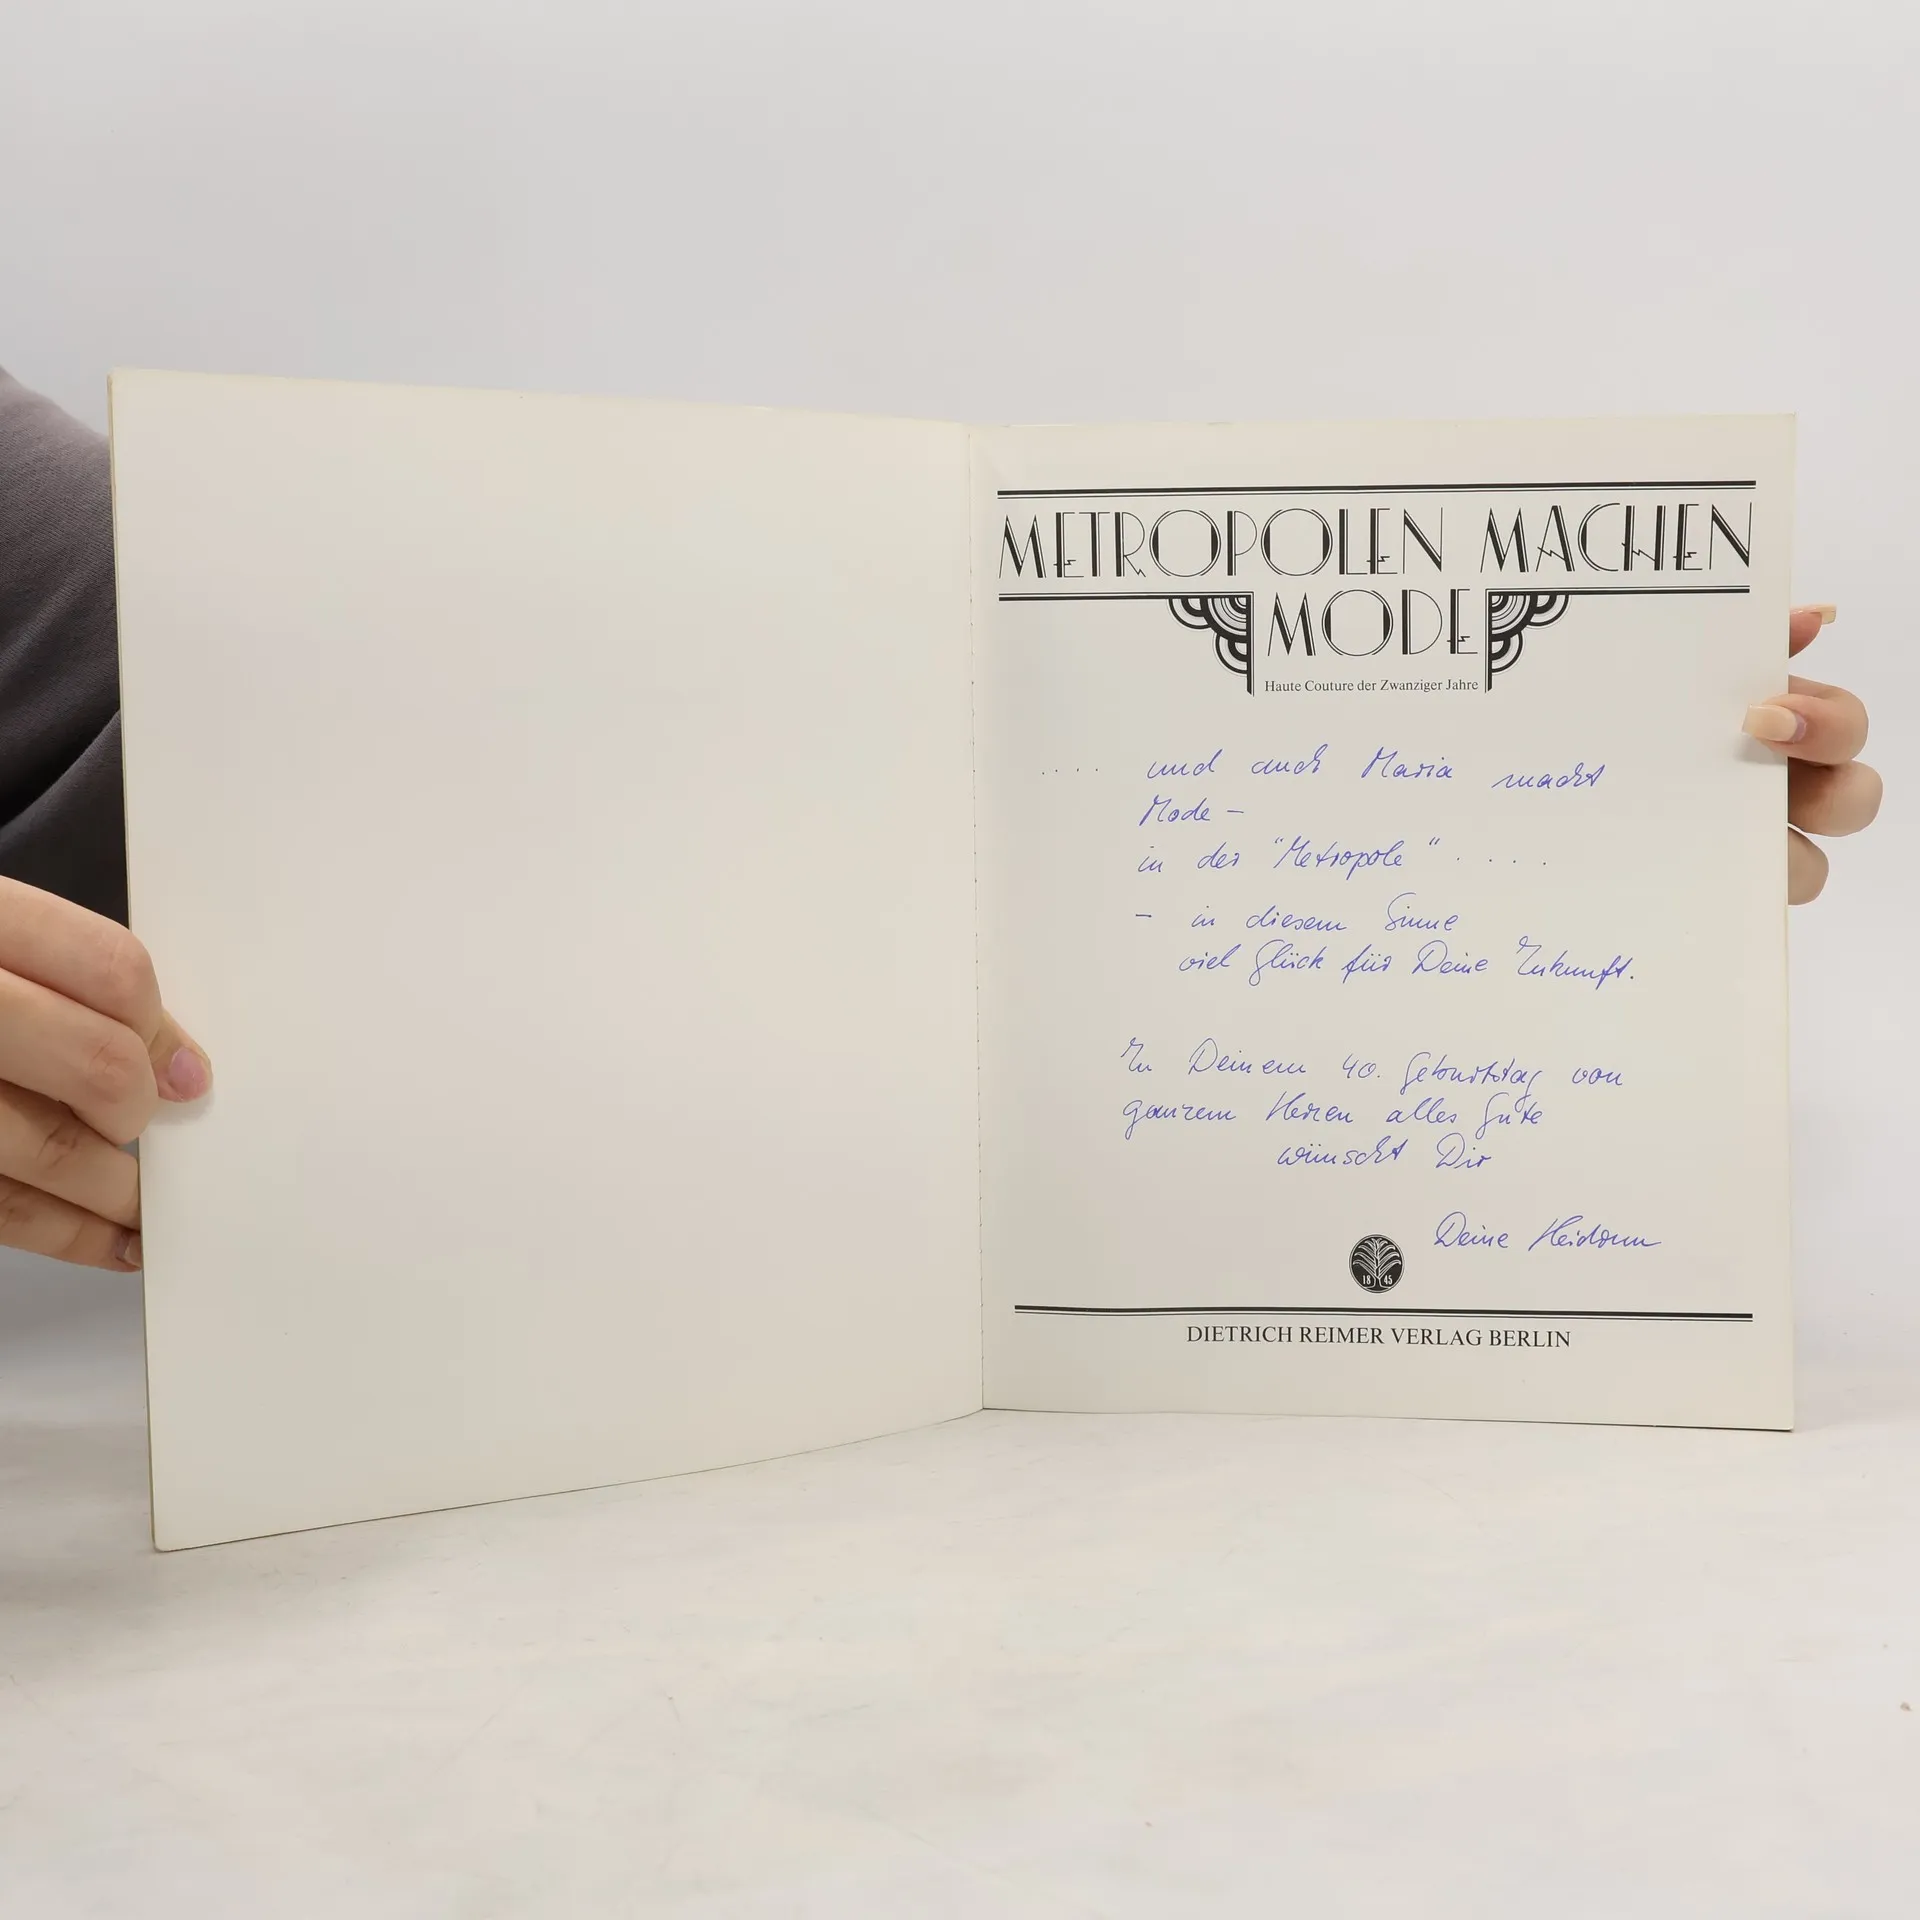 METROPOLEN MACHEN
MODE
Haute Couture der Zwanziger Jahre
.... und auch Maria macht
Mode –
in der "Metropole" ....
– in diesem Sinne
viel Glück für Deine Zukunft.
Zu Deinem 40. Geburtstag von
ganzem Herzen alles Gute
wünscht Dir
Deine Heidrun
18 45
DIETRICH REIMER VERLAG BERLIN